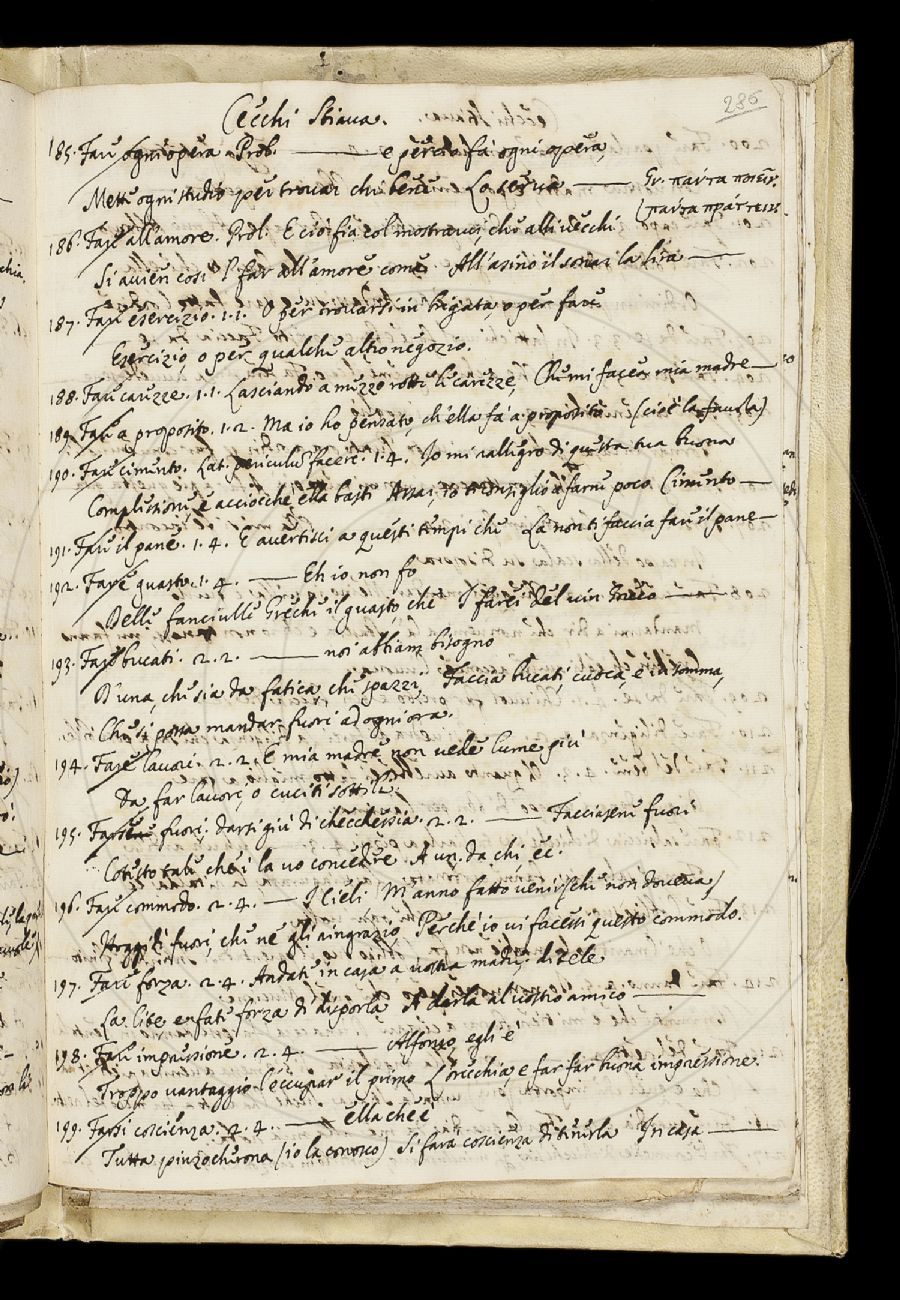 286
Cecchi Stiava.
185. Fare ogni opera. Prol. —— e perciò fà ogni opera,
Mette ogni studio per trovar chi bene La serva —— Gr. παντα ποιειν.
παντα πραττειν.
186. Fare all'amore. Prol. E ciò fia col mostrarvi, che alli vecchi
Si avien così 'l far all'amore come All'asino il sonar la lira ——
187. Fare esercizio. 1.1. O per trovarsi in brigata o per fare
Esercizio, o per qualche altro negozio.
188. Fare carezze. 1.1. Lasciando a mezzo rotte le carezze, Che mi facea mia madre —
189. Fare a proposito. 1.2. Ma io ho pensato, ch'ella fà a proposito (cioè la favola)
190. Fare cimento. Lat. periculum facere. 1.4. Io mi rallegro di questa tua buona
Complessione, e acciocche ella basti Assai, io ti consiglio a farne poco Cimento —
191. Fare il pane. 1.4. E avertisci a questi tempi che La non ti faccia fare il pane —
192. Fare guasto. 1.4. —— Eh io non fo
Delle fanciulle Greche il guasto, che I' farei del vin Greco ——
193. Fare bucati. 2.2. —— noi abbiam bisogno
D'una, che sia da fatica, che spazzi, Faccia bucati, cuoca, e in somma,
Che si possa mandar fuori ad ogni ora.
194. Fare lavori. 2.2. E mia madre non vede lume più
Da far lavori, o cuciti sottili.
195. Farsene fuori, darsi giù di checchessia. 2.2. —— Facciasene fuori
Cotesto tale che i' la vo concedere A un, da chi ec.
196. Fare commodo. 2.4. — I Cieli M'anno fatto venir (che non doveva)
Hoggidì fuori, che ne gli ringrazio Perche io vi facessi questo commodo.
197. Fare forza. 2.4. Andate in casa a vostra madre, ditele
La cosa e fate forza di disporla A darla al vostro amico ——
198. Fare impressione. 2.4. —— Alfonso, egli è
Troppo vantaggio l'occupar il primo L'orecchia, e far far buona impressione.
199. Farsi coscienza. 2.4. —— ella che è
Tutta pinzocherona (io la conosco) Si farà coscienza di tenerla In casa ——